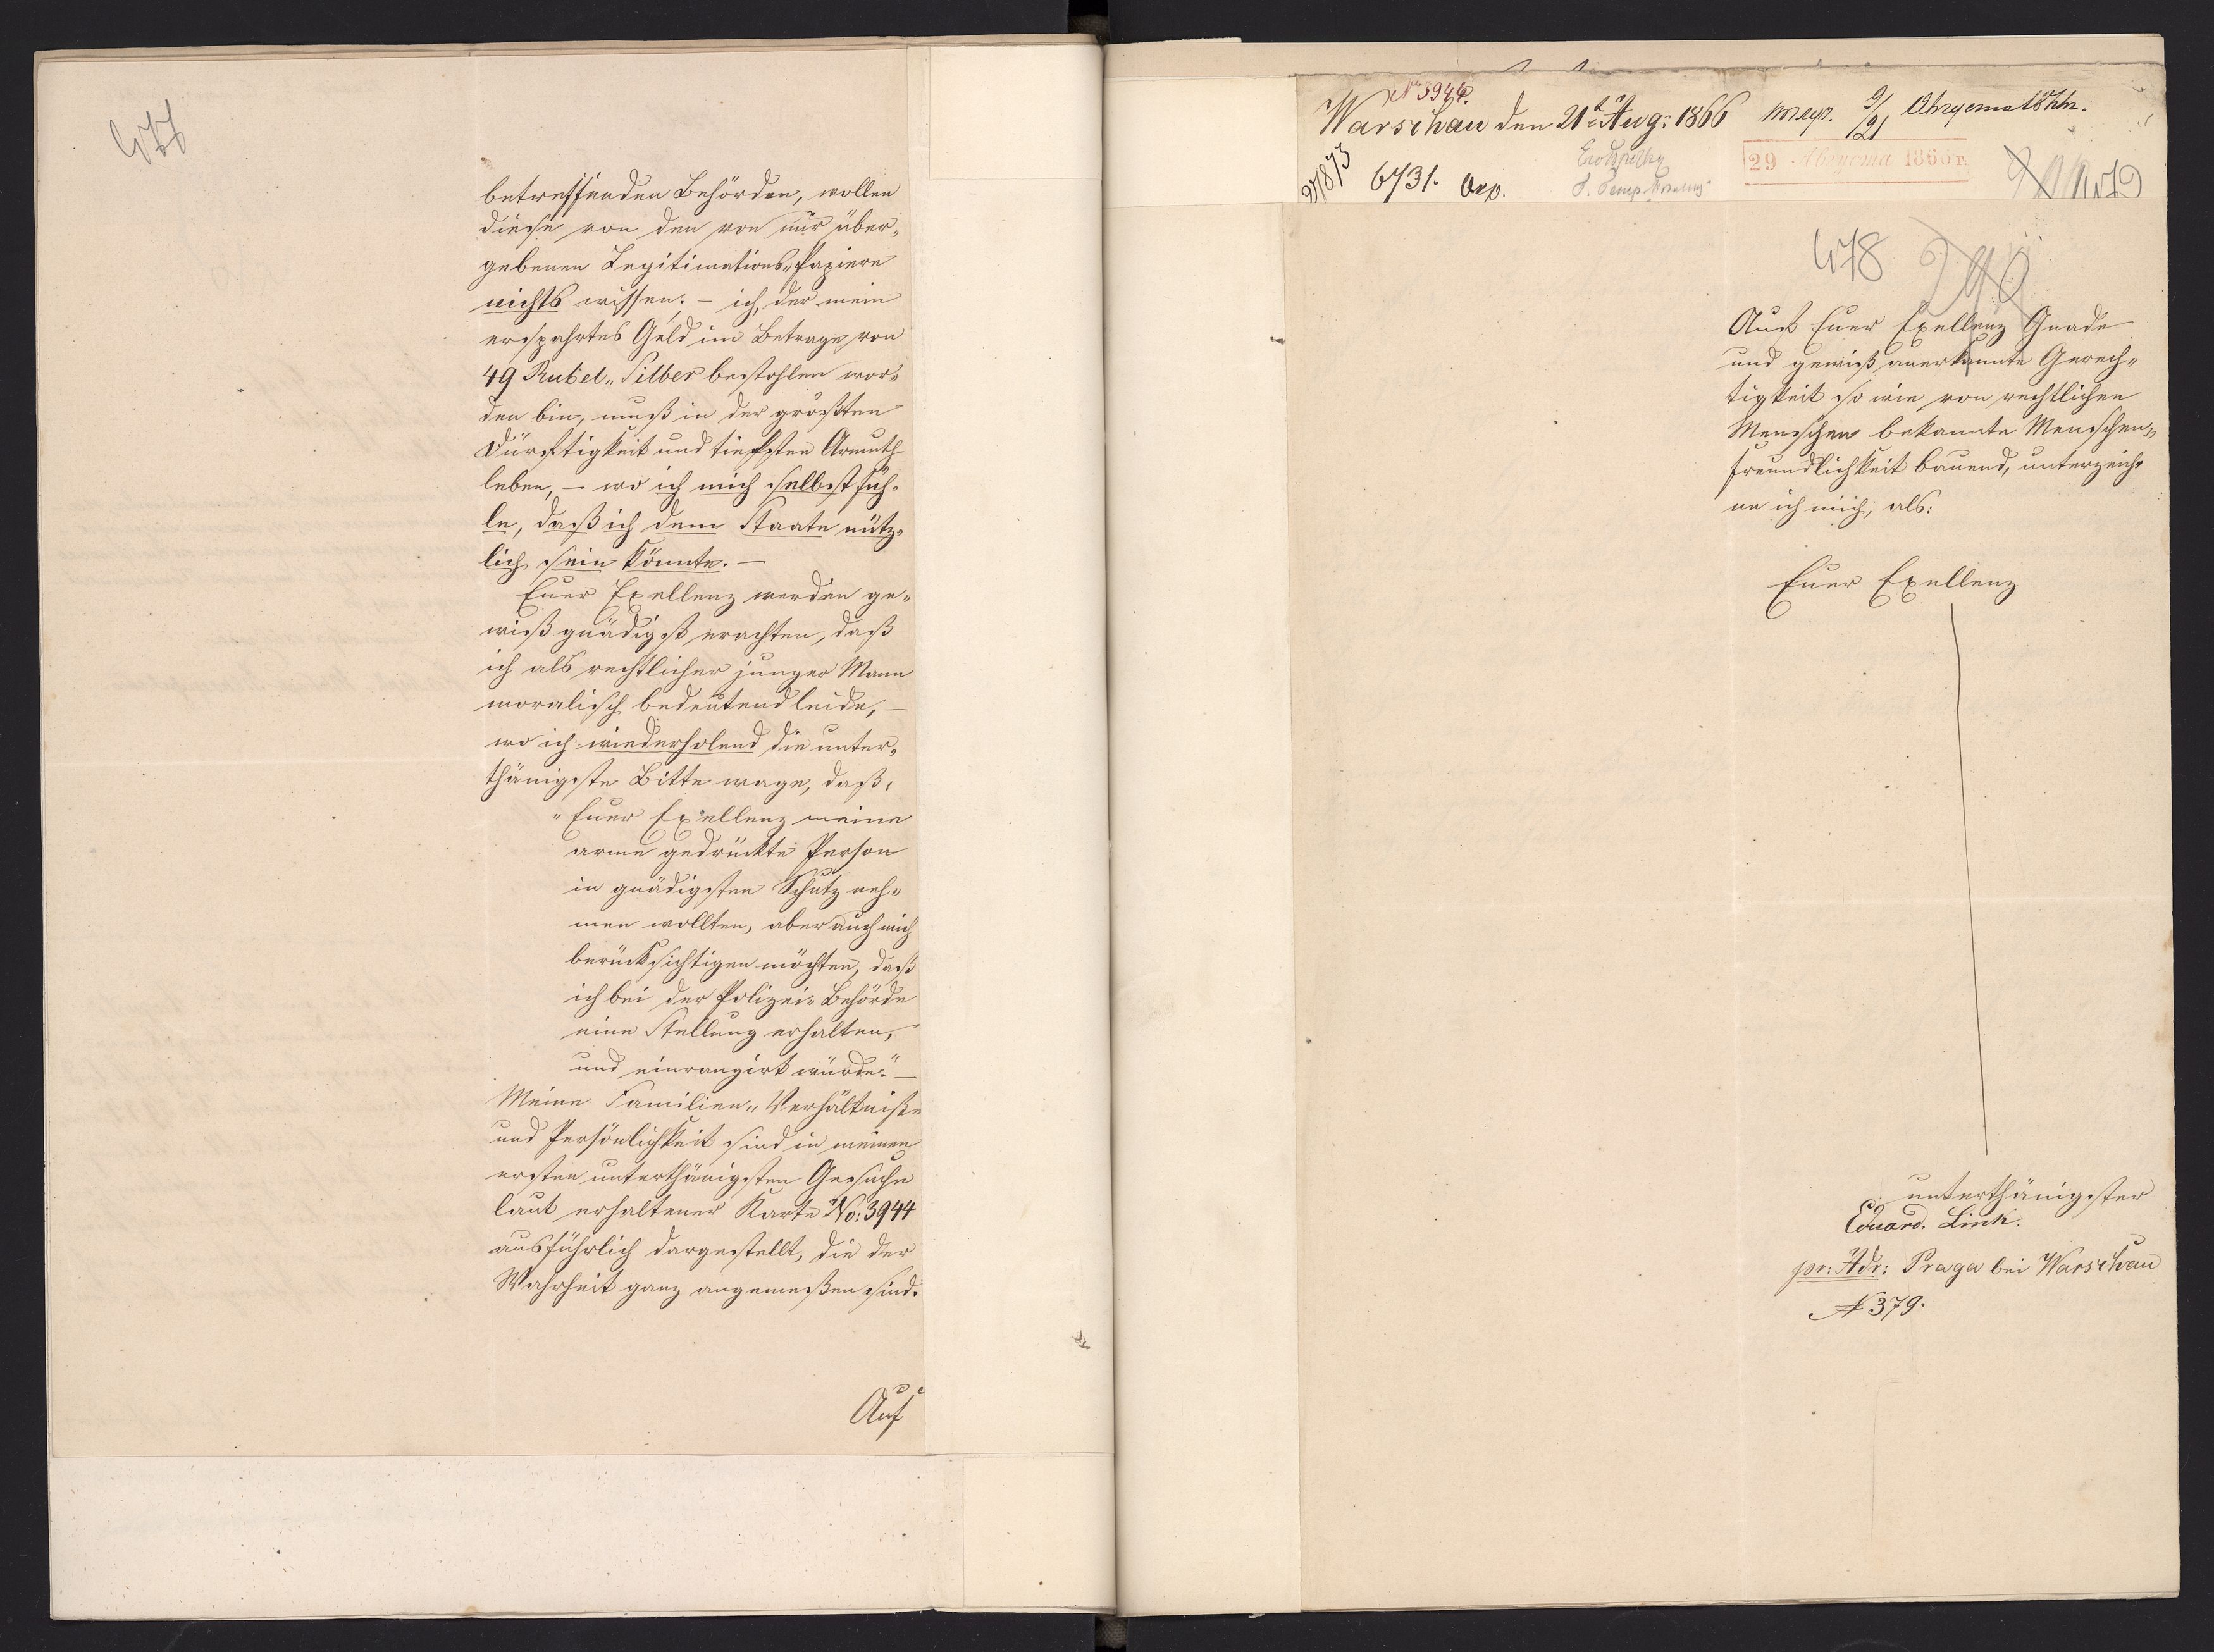 477
betreffenden Behörden, wollen
diese von den von mir über„
gebenen Legitimations„Papiere
nichts wissen; – ich, der mein
erspahrtes Geld im Betrage von
49 Rubel„ Silber bestohlen wor„
den bin, muß in der größten
Dürftigkeit und tiefsten Armuth
leben, – wo ich mich selbst füh„
le, daß ich dem Staate nütz„
lich sein könnte. –
Euer Exellenz werden ge„
wiß gnädigst erachten, daß
ich als rechtlicher junger Mann
moralisch bedeutend leide, –
wo ich wiederholend die unter„
thänigste Bitte wage, daß:
„Euer Exellenz meine
arme gedrückte Person
in gnädigsten Schutz neh„
men wollten, aber auch mich
berücksichtigen möchten, daß
ich bei der Polizei„ Behörde
eine Stellung erhalten,
und einrangirt würde.“ –
Meine Familien„ Verhältniße
und Persönlichkeit sind in meinem
ersten unterthänigsten Gesuche
laut erhaltener Karte No: 3944
ausführlich dargestellt, die der
Wahrheit ganz angemeßen sind.
Auf
№ 3944.
Warschau den 21t Aug: 1866
9/21 Августа
27873 6731.
29 Августа 1866 г.
479
478
Auf Euer Exellenz Gnade
und gewiß anerkannte Gerech„
tigkeit so wie von rechtlichen
Menschen bekannte Menschen„
freundlichkeit bauend, unterzeich„
ne ich mich, als:
Euer Exellenz
unterthänigster
Eduard. Link.
pr: Adr: Praga bei Warschau
№ 379.